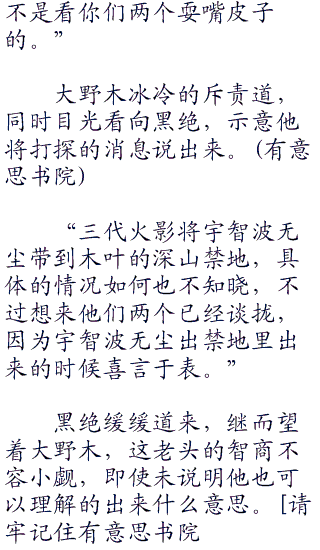 不是看你们两个耍嘴皮子
的。”
大野木冰冷的斥责道，
同时目光看向黑绝，示意他
将打探的消息说出来。(有意
思书院)
“三代火影将宇智波无
尘带到木叶的深山禁地，具
体的情况如何也不知晓，不
过想来他们两个已经谈拢，
因为宇智波无尘出禁地里出
来的时候喜言于表。”
黑绝缓缓道来，继而望
着大野木，这老头的智商不
容小觑，即使未说明他也可
以理解的出来什么意思。[请
牢记住有意思书院